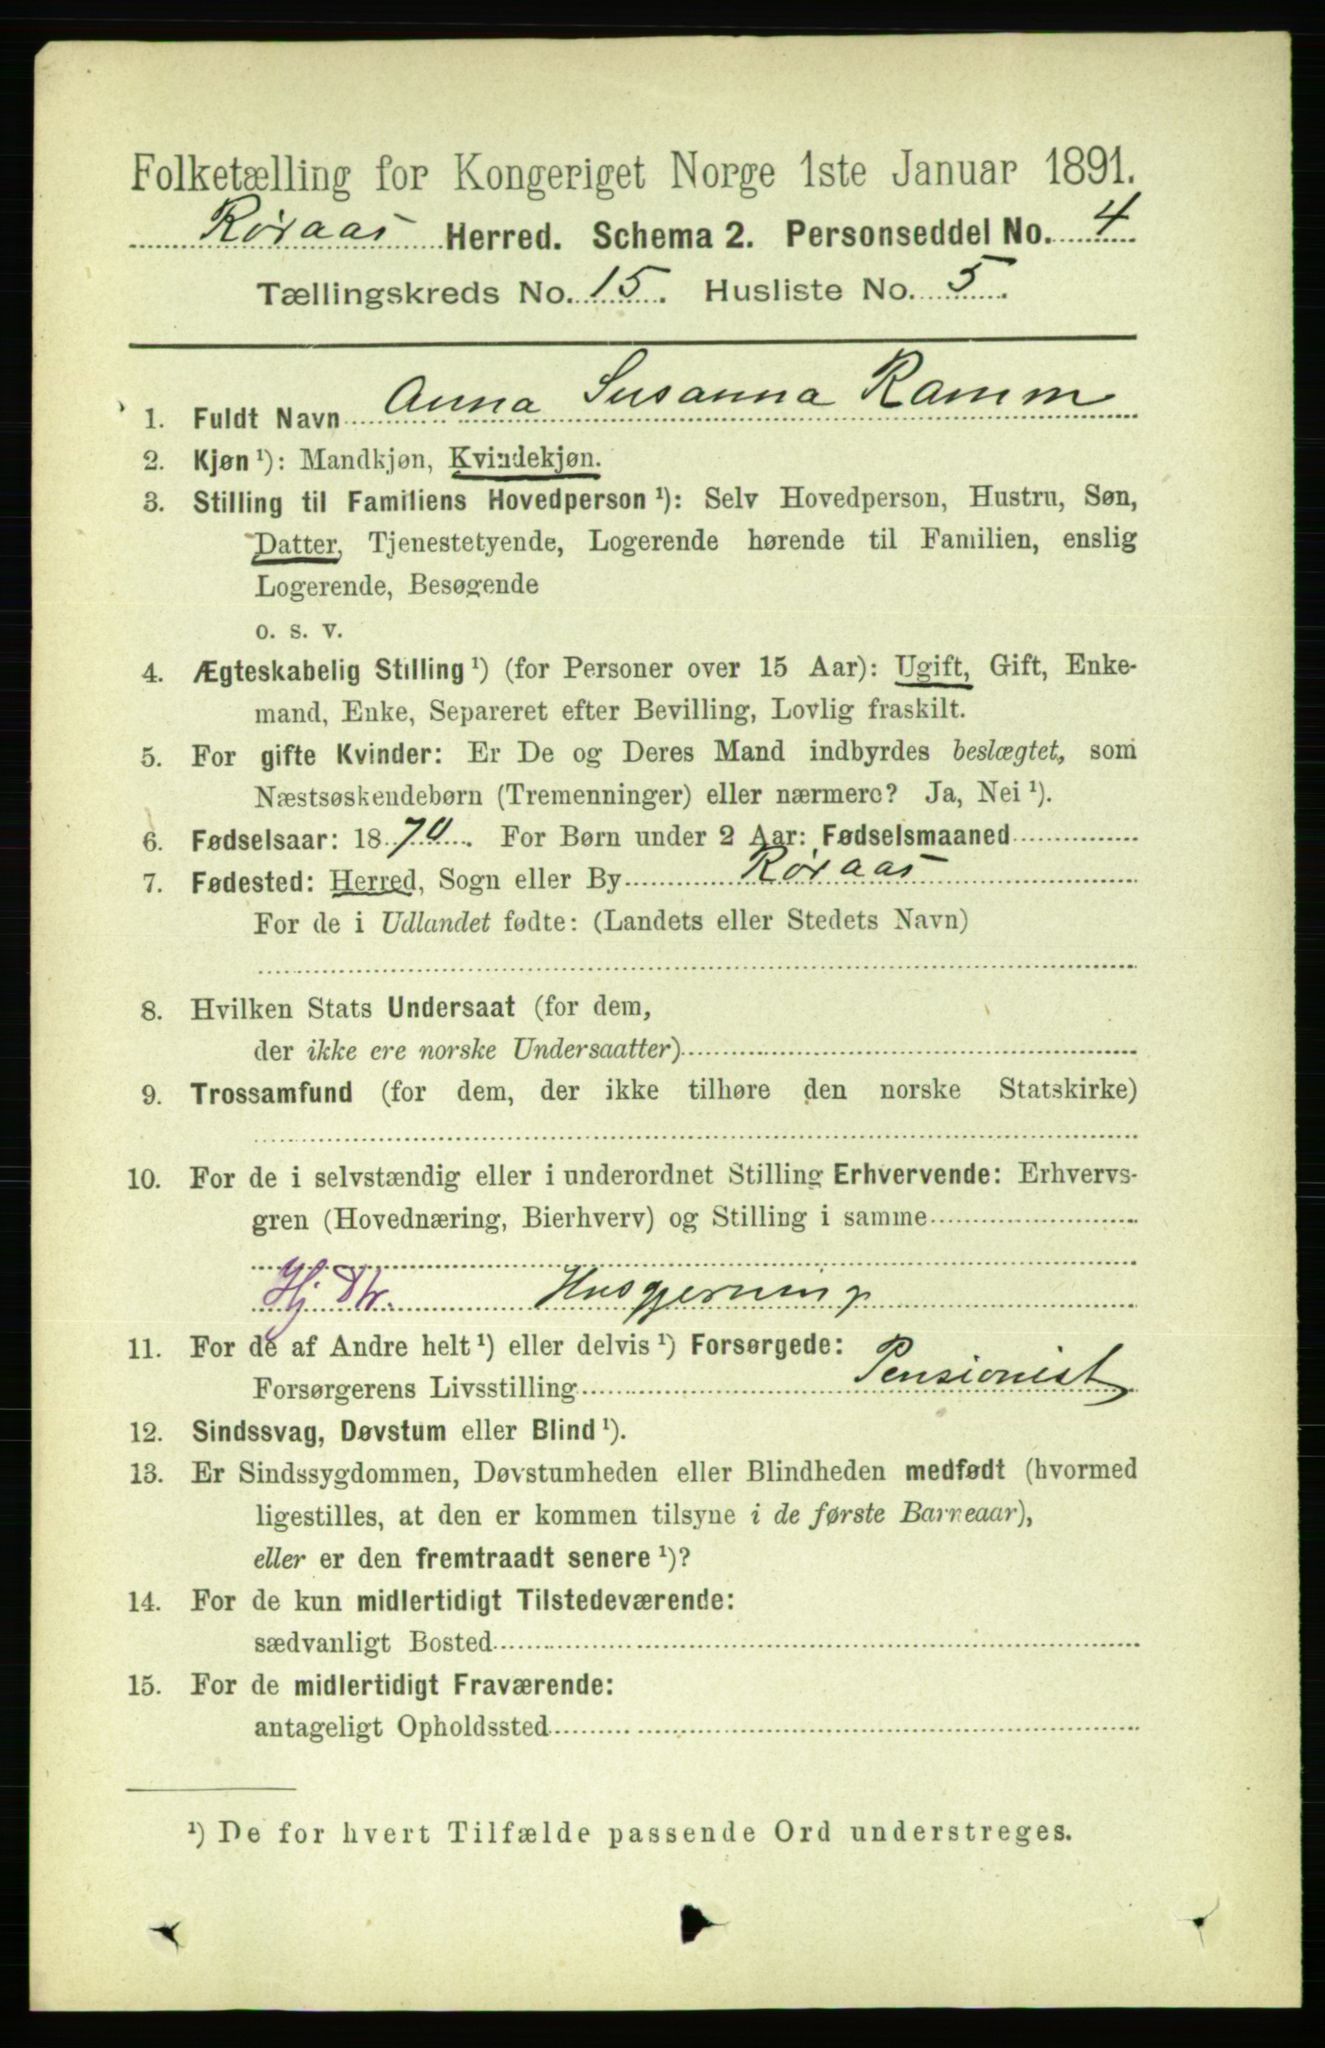 Folketælling for Kongeriget Norge 1ste Januar 1891.
Røraas Herred. Schema 2. Personseddel No. 4
Tællingskreds No. 15. Husliste No. 5.
1. Fuldt Navn Anna Susanna Ramm
2. Kjøn ¹): Mandkjøn, Kvindekjøn.
3. Stilling til Familiens Hovedperson ¹): Selv Hovedperson, Hustru, Søn,
Datter, Tjenestetyende, Logerende hørende til Familien, enslig
Logerende, Besøgende
o. s. v.
4. Ægteskabelig Stilling ¹) (for Personer over 15 Aar): Ugift, Gift, Enke-
mand, Enke, Separeret efter Bevilling, Lovlig fraskilt.
5. For gifte Kvinder: Er De og Deres Mand indbyrdes beslægtet, som
Næstsøskendebørn (Tremenninger) eller nærmere? Ja, Nei ¹).
6. Fødselsaar: 1870. For Børn under 2 Aar: Fødselsmaaned
7. Fødested: Herred, Sogn eller By Røraas
For de i Udlandet fødte: (Landets eller Stedets Navn)
8. Hvilken Stats Undersaat (for dem,
der ikke ere norske Undersaatter)
9. Trossamfund (for dem, der ikke tilhøre den norske Statskirke)
10. For de i selvstændig eller i underordnet Stilling Erhvervende: Erhvervs-
gren (Hovednæring, Bierhverv) og Stilling i samme
Hj Dtr. Husgjerning
11. For de af Andre helt ¹) eller delvis ¹) Forsørgede:
Forsørgerens Livsstilling Pensionist
12. Sindssvag, Døvstum eller Blind ¹).
13. Er Sindssygdommen, Døvstumheden eller Blindheden medfødt (hvormed
ligestilles, at den er kommen tilsyne i de første Barneaar),
eller er den fremtraadt senere ¹)?
14. For de kun midlertidigt Tilstedeværende:
sædvanligt Bosted
15. For de midlertidigt Fraværende:
antageligt Opholdssted
¹) De for hvert Tilfælde passende Ord understreges.